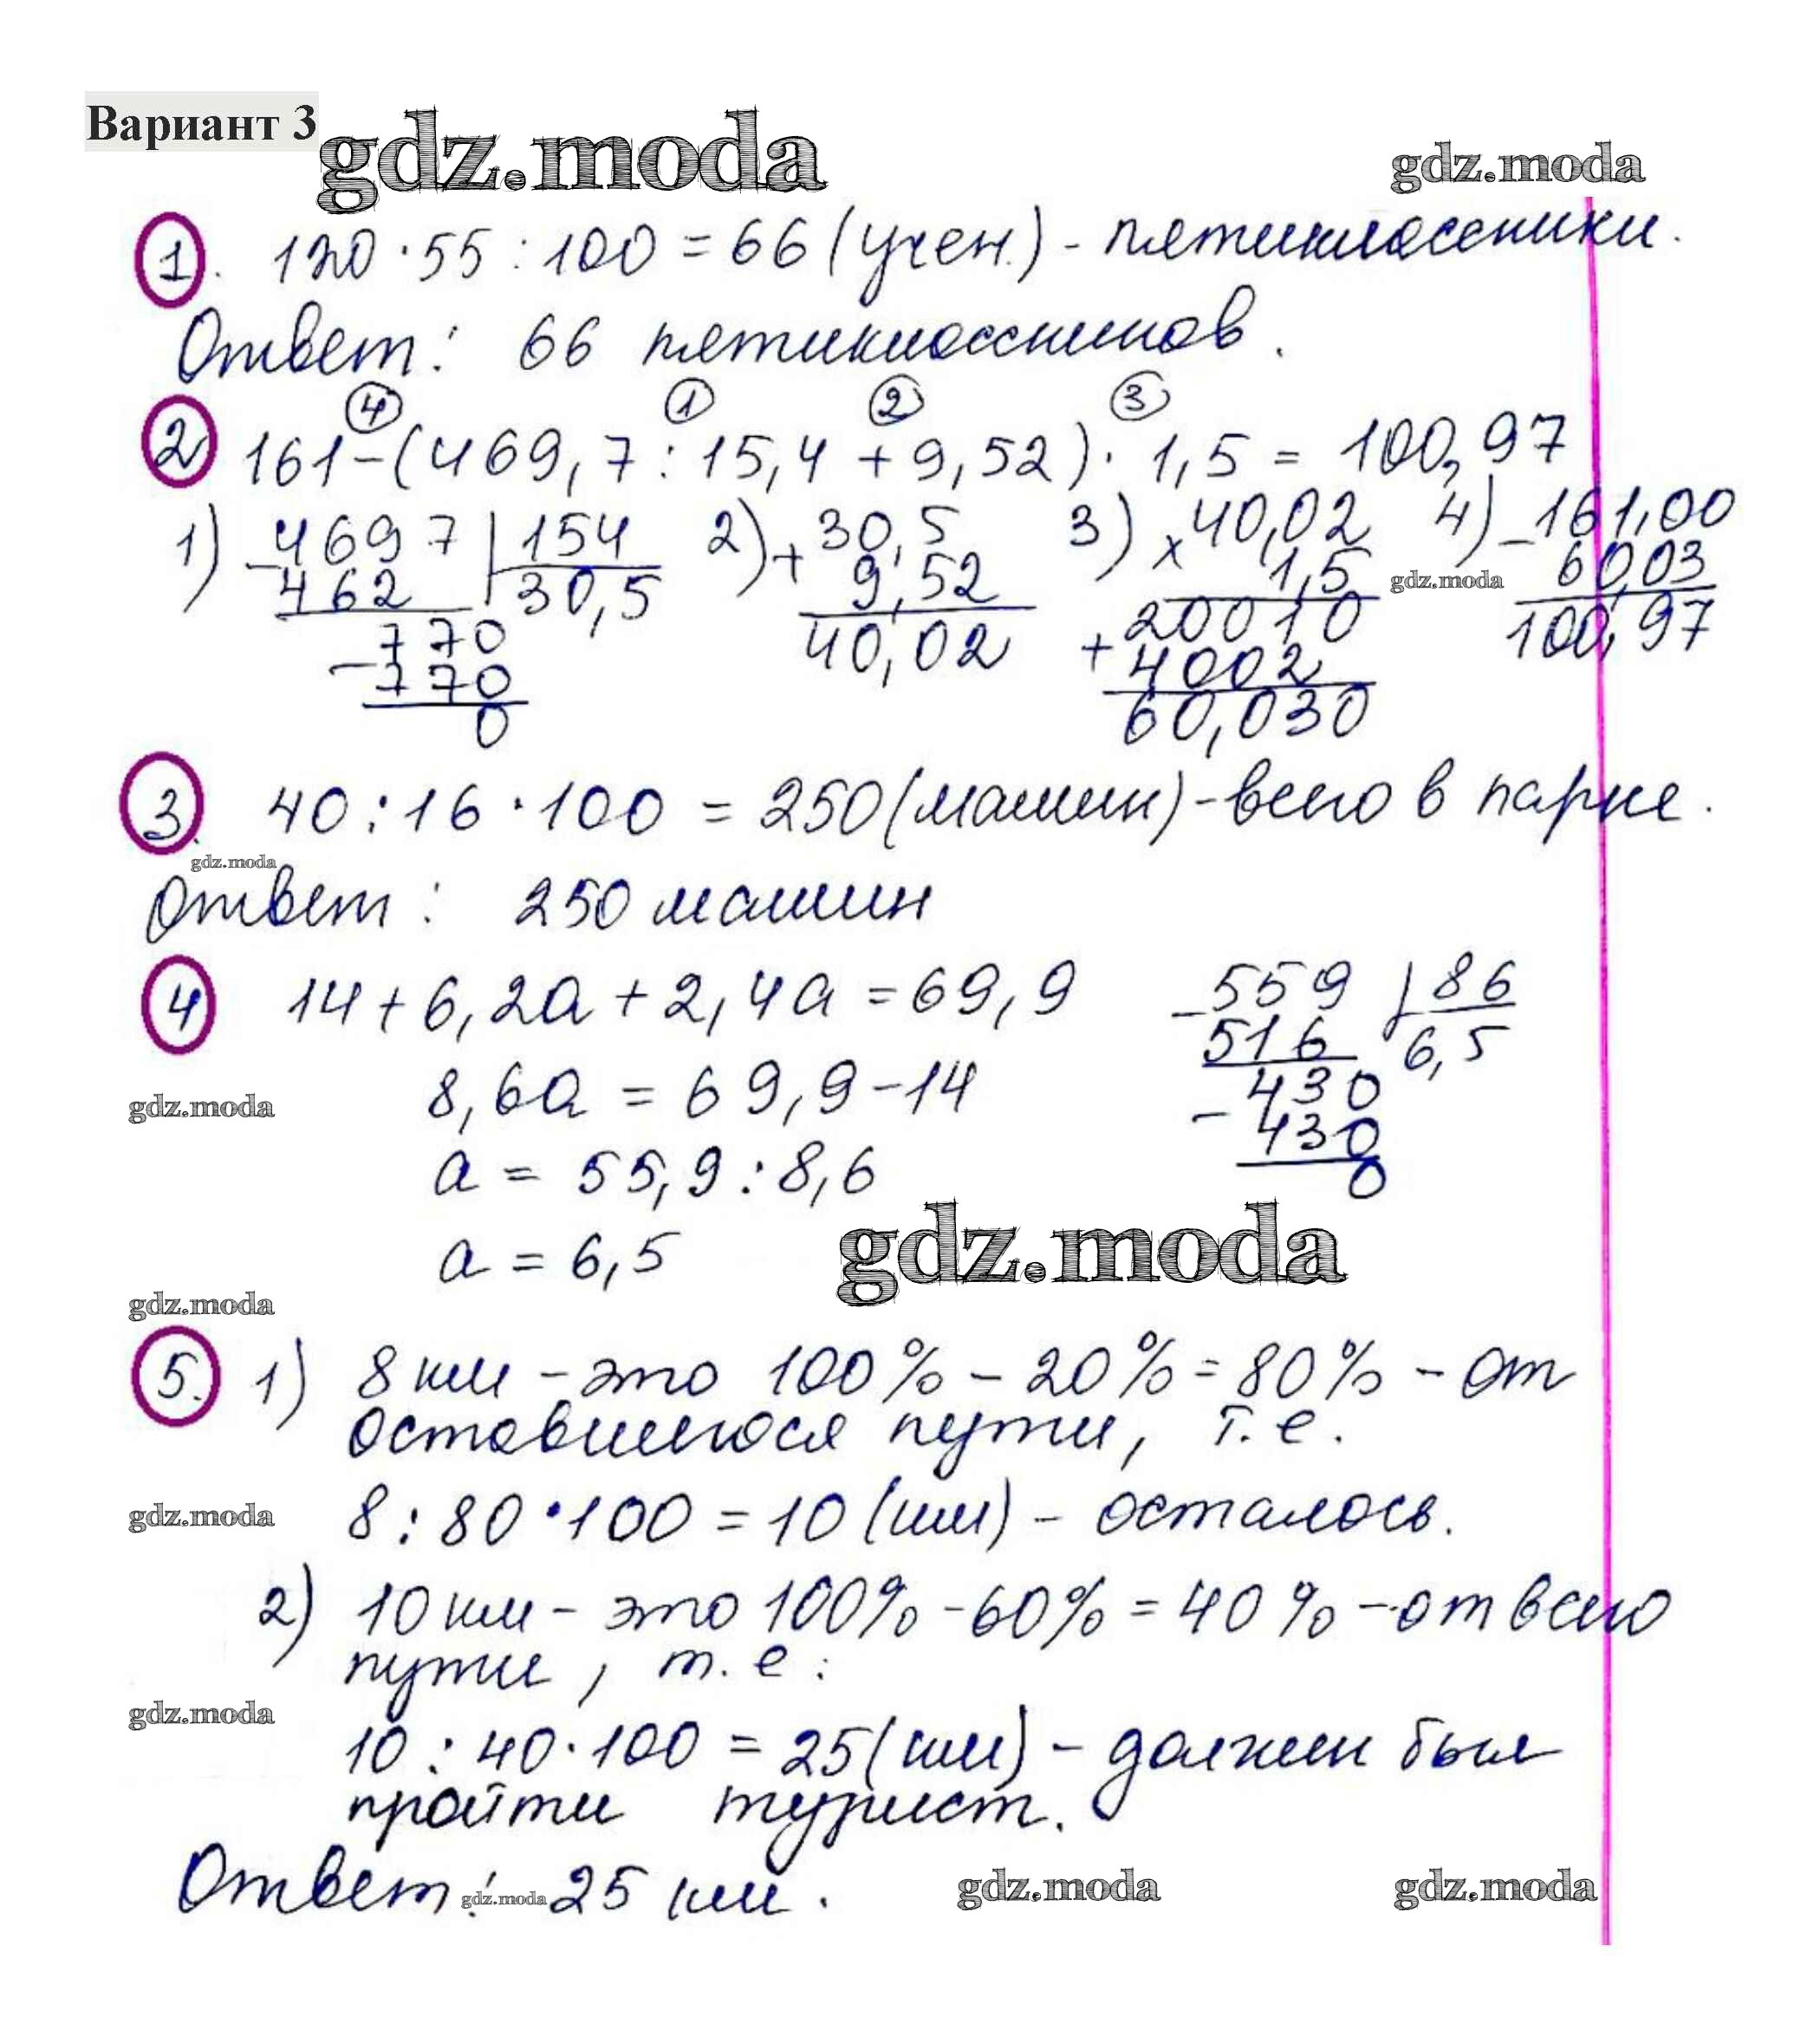 Вариант 3
gdz.moda
gdz.moda
1. 120 · 55 : 100 = 66 (учен.) - пятиклассники.
Ответ: 66 пятиклассников.
4 1 2 3
2 161 - (469,7 : 15,4 + 9,52) · 1,5 = 100,97
1) - 4697 | 154 2) + 30,5 3) x 40,02 4) - 161,00
462 30,5 9,52 1,5 gdz.moda 60,03
- 770 40,02 + 20010 100,97
770 4002
0 60,030
3. 40 : 16 · 100 = 250 (машин) - всего в парке.
gdz.moda
Ответ: 250 машин
4 14 + 6,2a + 2,4a = 69,9 - 559 | 86
516 6,5
8,6a = 69,9 - 14 - 430
gdz.moda
430
a = 55,9 : 8,6 0
gdz.moda
a = 6,5
gdz.moda
5. 1) 8 км - это 100% - 20% = 80% - от
оставшегося пути, т.е.
gdz.moda 8 : 80 · 100 = 10 (км) - осталось.
2) 10 км - это 100% - 60% = 40% - от всего
пути, т.е:
gdz.moda
10 : 40 · 100 = 25 (км) - должен был
пройти турист.
Ответ: gdz.moda 25 км. gdz.moda gdz.moda